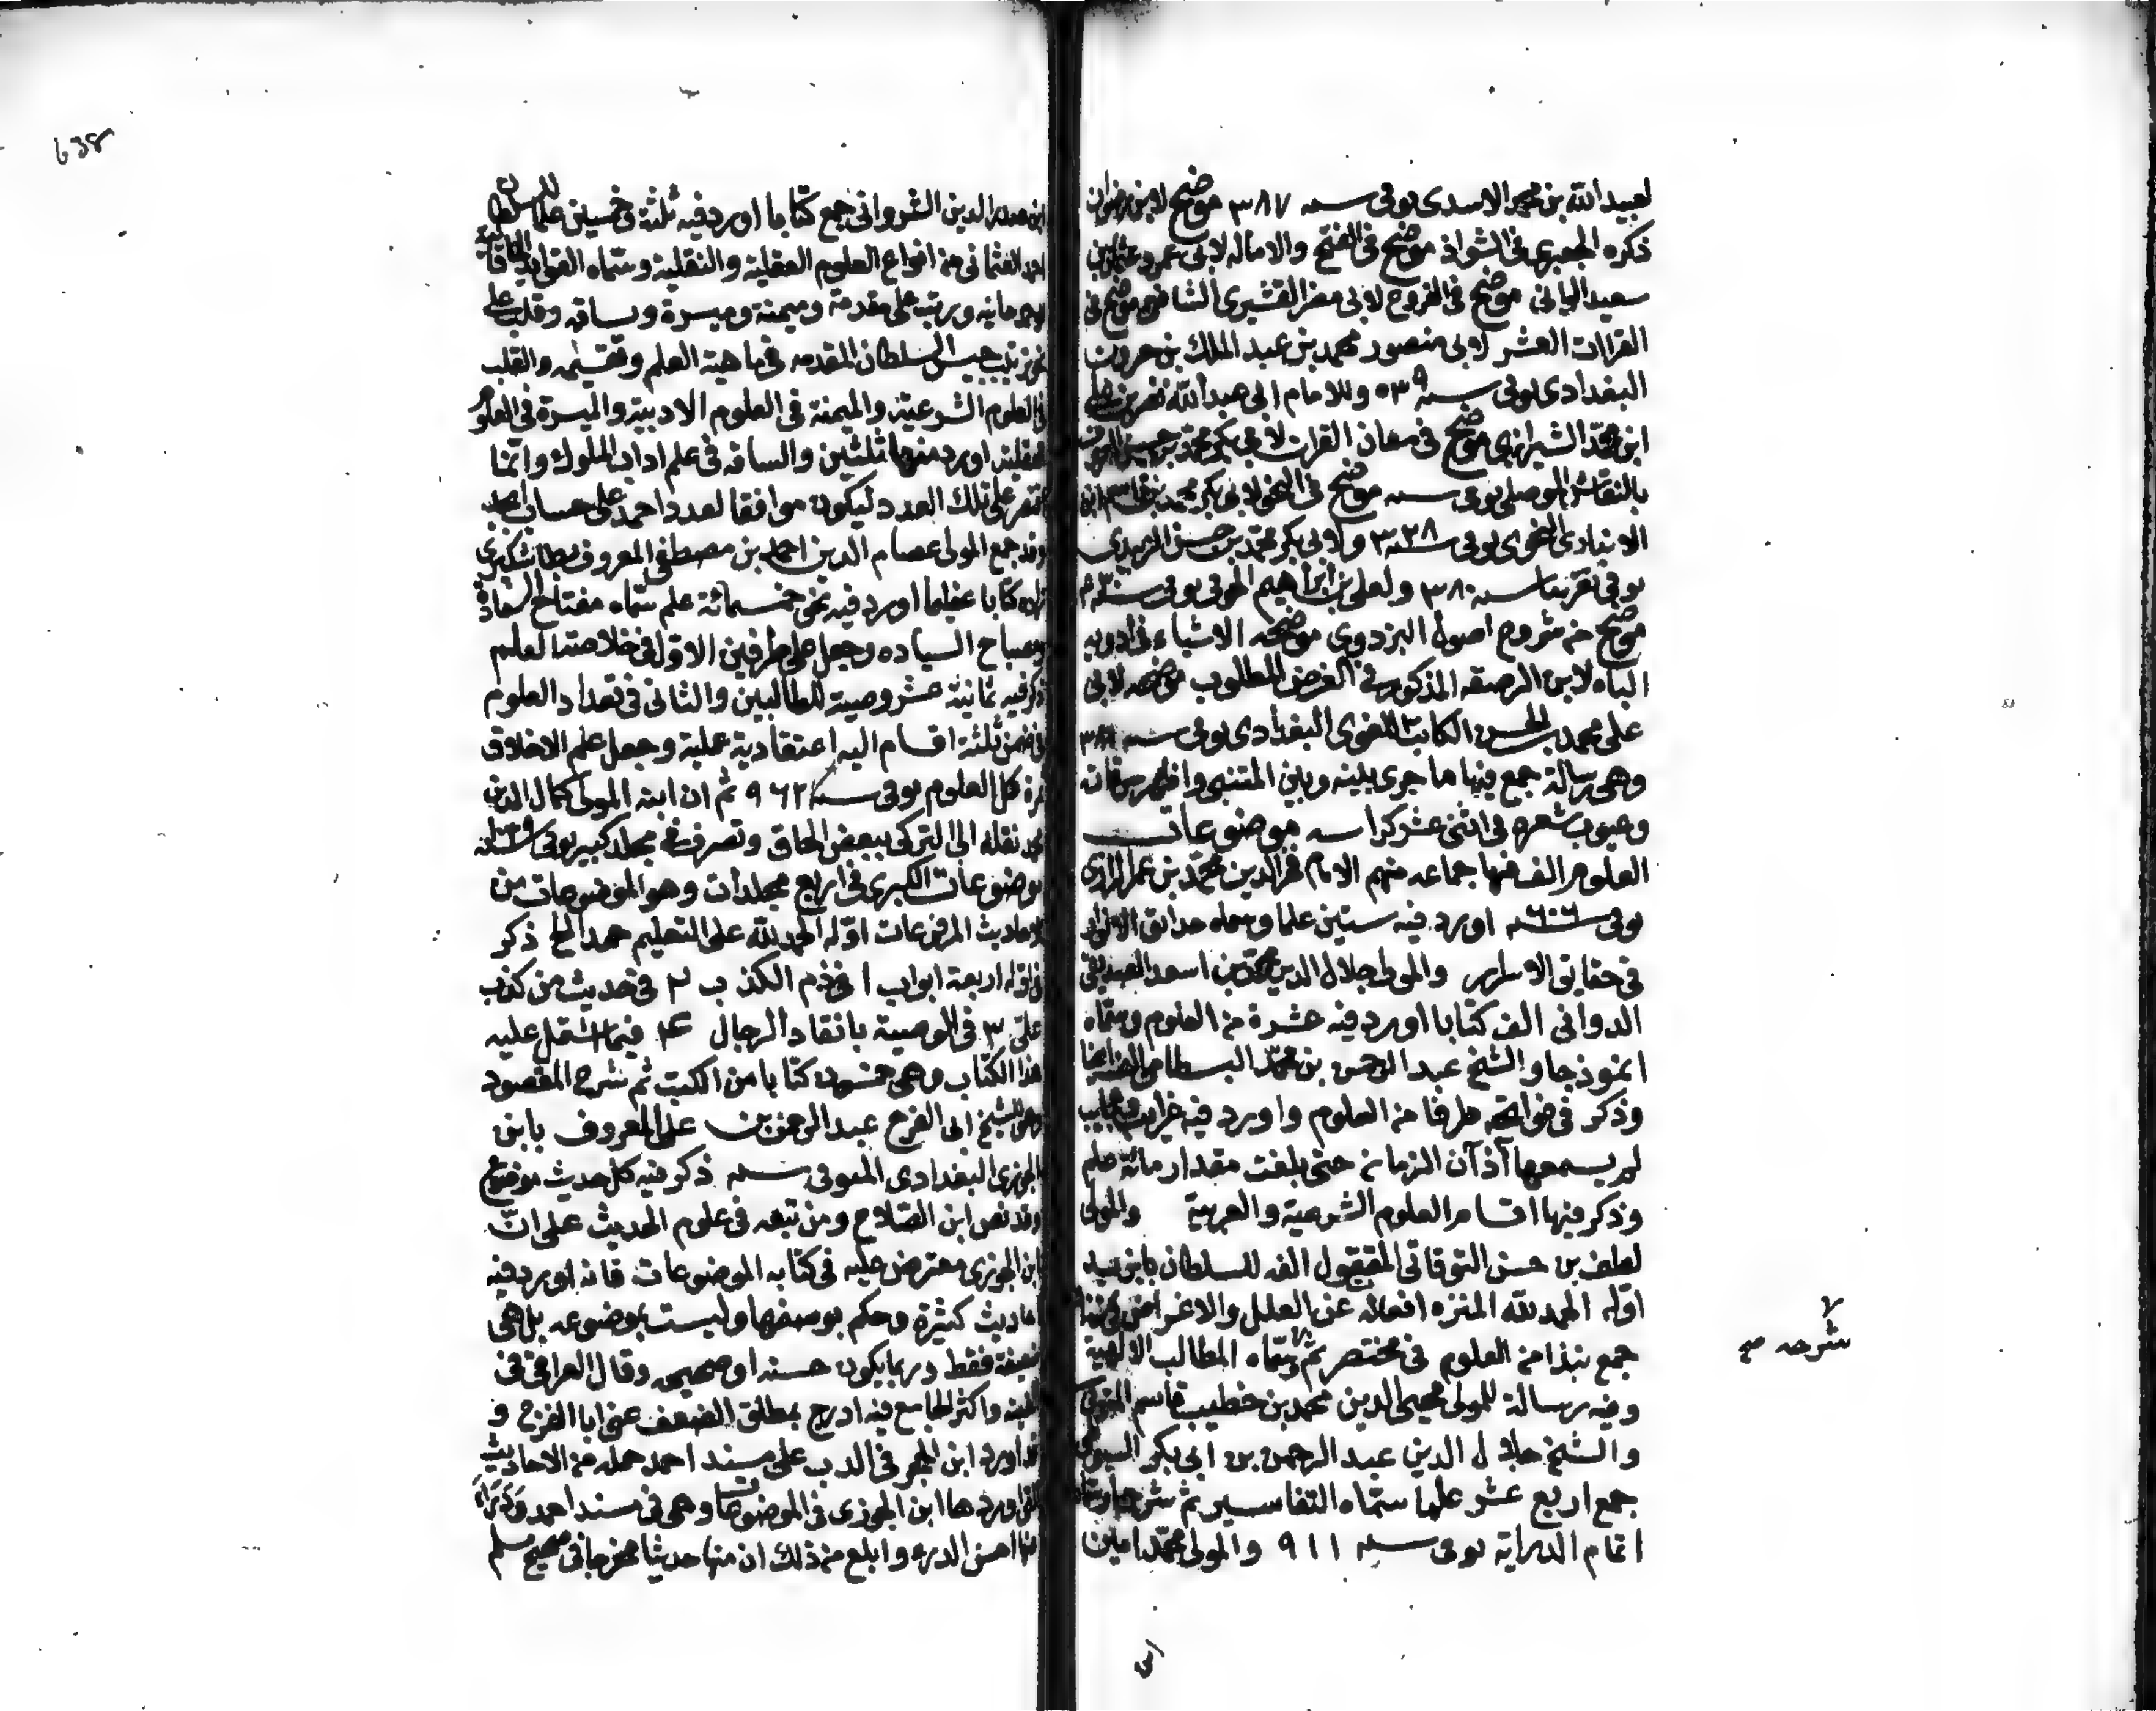 لعبيد الله بن محمد الاسدى توفى سنه ٣٨٧ موضح لابن رضوان
ذكره الجعبرى فى الشواذ موضح فى الفتح والاماله لابى عمرو عثمان بن
سعيد الدانى موضح فى الفروع لابى القشيرى الشافعى موضح فى
القراات العشر لابى منصور محمد بن عبد الملك بن خيرون
البغدادى توفى سنه ٥٣٩ وللامام ابى عبد الله نصر بن على
ابن محمد الشيرازى موضح فى معان القران لابى بكر محمد بن حسن المعروف
بالنقاش الموصلى توفى سنه موضح فى النحو لابى بكر محمد بن قاسم ابن
الانبارى النحوى توفى سنه ٣٢٨ ولابى بكر محمد بن حسن الزبيدى
توفى تقريبا سنه ٣٨٠ ولعلى بن ابراهيم الحوفى توفى سنه
موضح من شروح اصول البزدوى موضحه الاشتباه فى ادويه
الباه لابن الرصيقه المذكور فى الغرض المطلوب موضحه لابى
على محمد بن الحسن الكاتب اللغوى البغدادى توفى سنه ٣٨٨
وهى رسالة جمع فيها ما جرى بينه وبين المتنبى واظهر سرقاته
وعيوب شعره فى اثنى عشر كراسه موضوعات
العلوم الف فيها جماعه منهم الامام فخر الدين محمد بن عمر الرازى
توفى سنه ٦٠٦ اورد فيه ستين علما وسماه حدائق الانوار
فى حقايق الاسرار والمولى جلال الدين محمد بن اسعد الصديقى
الدوانى الف كتابا اورد فيه عشرة من العلوم وسماه
انموذجا والشيخ عبد الرحمن بن محمد البسطامى الف ايضا
وذكر فى فواتحه طرفا من العلوم واورد فيه غرايب وعجايب
لم يسمعها آذان الزمان حتى بلغت مقدار مائة علم
وذكر فيها اقسام العلوم الشرعية والعربية والمولى
لطف بن حسن التوقاتى المقتول الفه للسلطان بايزيد
اوله الحمد لله المنزه افعاله عن العلل والاغراض
جمع نبذا من العلوم فى مختصر ثم وسماه المطالب الالهية
شرحه صح
وفيه رسالة للمولى محيى الدين محمد بن خطيب قاسم المتوفى
والشيخ جلال الدين عبد الرحمن بن ابى بكر السيوطى
جمع اربع عشر علما سماه النقاية ثم شرحها وسماه
اتمام الدراية توفى سنه ٩١١ والمولى محمد امين
ابن صدر الدين الشروانى جمع كتابا اورد فيه ثلثة وخمسين علما للسلطان
احمد العثمانى من انواع العلوم العقلية والنقلية وسماه الفوايد الخاقانية
الاحمد خانيه ورتبه على مقدمة وميمنة وميسرة وساقه وقلب على
نحو ترتيب جيش السلطان المقدمه فى ماهية العلم وتقسيمه والقلب
فى العلوم الشرعية والميمنة فى العلوم الادبية والميسرة فى العلوم
العقلية اورد منها ثلثين والساقه فى علم اداب الملوك وانما
اقتصر على ذلك العدد ليكون موافقا لعدد احمد على حساب ابجد
وقد جمع المولى عصام الدين احمد بن مصطفى المعروف بطاشكبرى
زاده كتابا عظيما اورد فيه نحو خمسمائة علم سماه مفتاح السعادة
ومصباح السياده وجعل على طرفين الاول فى خلاصة العلم
ذكر فيه ثمانية عشر وصية للطالبين والثانى فى تعداد العلوم
فى ضمن ثلثة اقسام اليه اعتقادية عملية وجعل علم الاخلاق
ثمرة كل العلوم توفى سنه ٩٦٢ ثم ان ابنه المولى كمال الدين
محمد نقله الى التركى ببعض الحاق وتصرف فى مجلد كبير توفى سنه
موضوعات الكبرى فى اربع مجلدات وهو الموضوعات من
الاحاديث المرفوعات اوله الحمد لله على التعليم حمدا الخ ذكر
فى اوله اربعة ابواب ا فى ذم الكذب ٢ فى حديث من كذب
على ٣ فى الوصية بانتقاد الرجال ٤ فيما اشتمل عليه
هذا الكتاب وهى خمسون كتابا من الكتب ثم شرح المقصود
وهو للشيخ ابى الفرج عبد الرحمن بن على المعروف بابن
الجوزى البغدادى المتوفى سنه ذكر فيه كل حديث موضوع
وقد نص ابن الصلاح ومن تبعه فى علوم الحديث على ان
ابن الجوزى معترض عليه فى كتابه الموضوعات فانه اورد فيه
احاديث كثيرة وحكم بوضعها وليست بوضوعه بل هى
ضعيفة فقط وربما يكون حسنه او صحيحه وقال العراقى فى
الفيته واكثر الجامع فيه اذ خرج لمطلق الضعف عنى ابا الفرج و
قد اورد ابن الحجر فى الذب على مسند احمد جمله من الاحاديث
التى اوردها ابن الجوزى فى الموضوعات وهى فى مسند احمد
احسن الدرء وابلغ من ذلك ان منها حديثا مخرجا فى صحيح مسلم